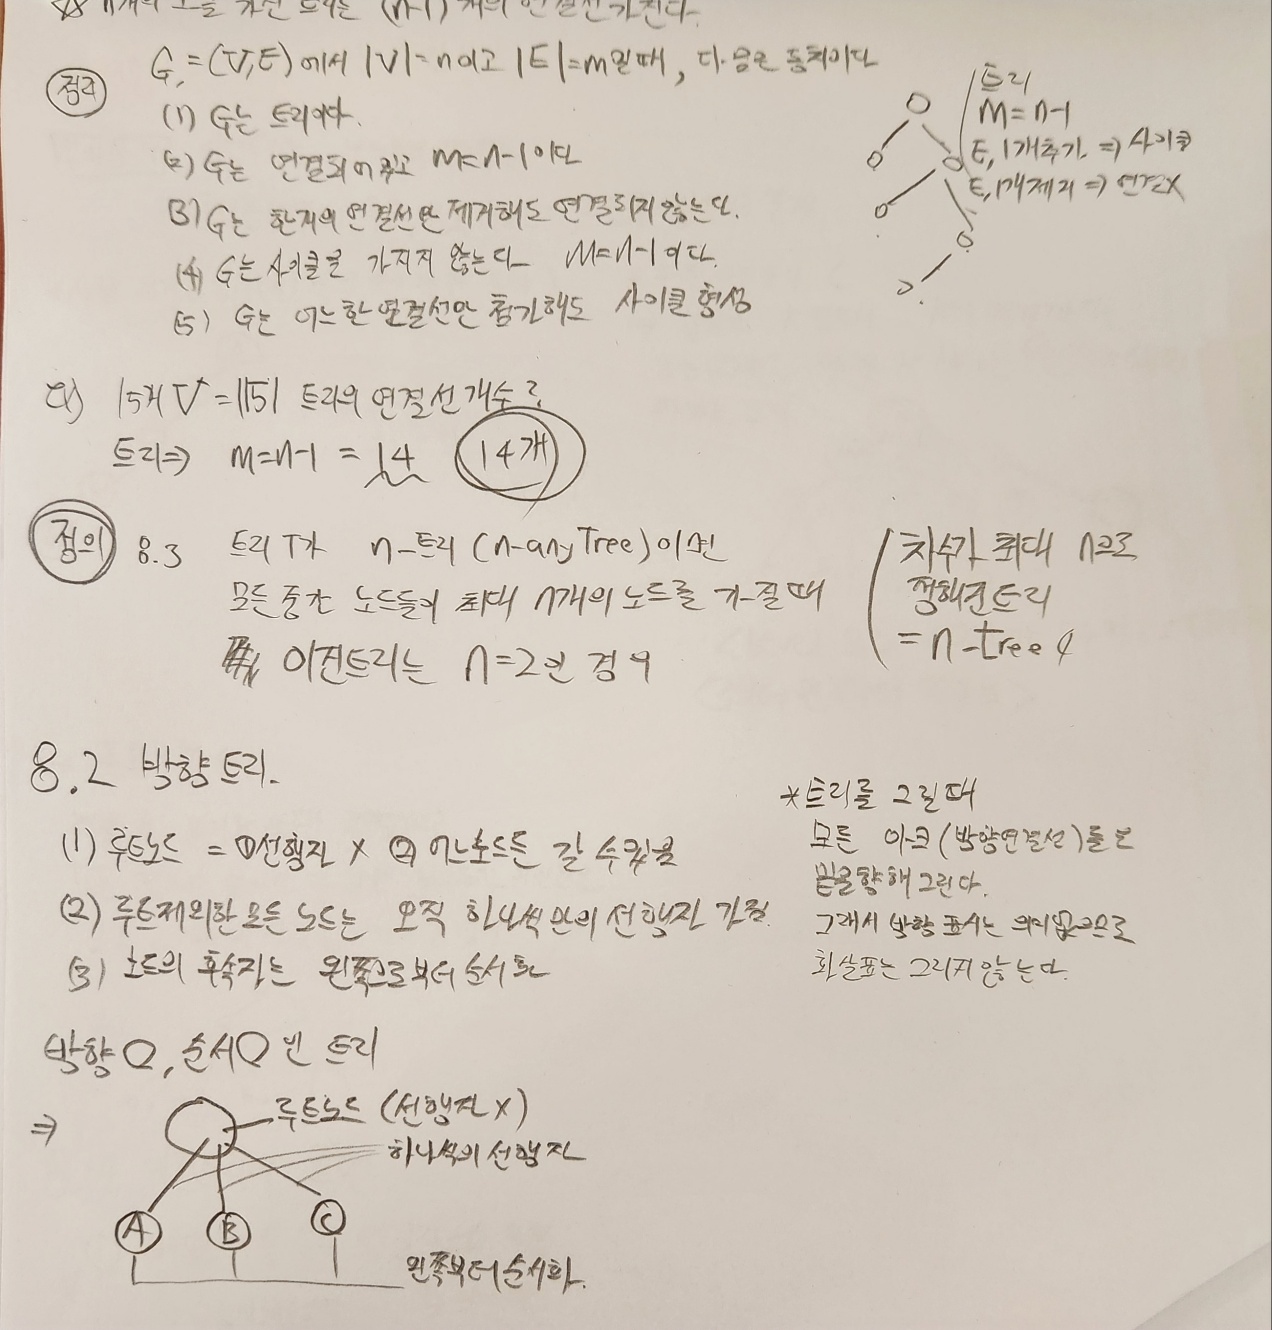 n개의 노드를 가진 트리는 (n-1)개의 연결선 가진다.
정리
G=(V,E)에서 |V|=n이고 |E|=m일때, 다음은 동치이다
(1) G는 트리이다.
(2) G는 연결되어 있고 m=n-1이다
(3) G는 한개의 연결선만 제거해도 연결되지 않는다.
(4) G는 사이클을 가지지 않는다 m=n-1이다.
(5) G는 어느한 연결선만 첨가해도 사이클 형성
트리
m=n-1
E, 1개추가 => 사이클
E, 1개제거 => 연결X
예) 15개 V=|15| 트리의 연결선 개수?
트리=> m=n-1 = 14 14개
정의 8.3 트리 T가 n-트리 (n-any Tree)이면
모든 중간 노드들이 최대 n개의 노드를 가질때
이진트리는 n=2인 경우
차수가 최대 n으로
정해진트리
= n-tree
8.2 방향 트리.
(1) 루트노드 = ①선행자 X ② 어느노드든 갈 수 있음
(2) 루트제외한 모든 노드는 오직 하나씩만의 선행자 가짐
(3) 노드의 후속자는 왼쪽으로부터 순서화
*트리를 그릴때
모든 아크(방향연결선)를
밑을향해 그린다.
그래서 방향 표시는 의미없으므로
화살표는 그리지 않는다.
방향O, 순서O 인 트리
=>
루트노드 (선행자 X)
하나씩의 선행자
A B C
왼쪽부터 순서화.